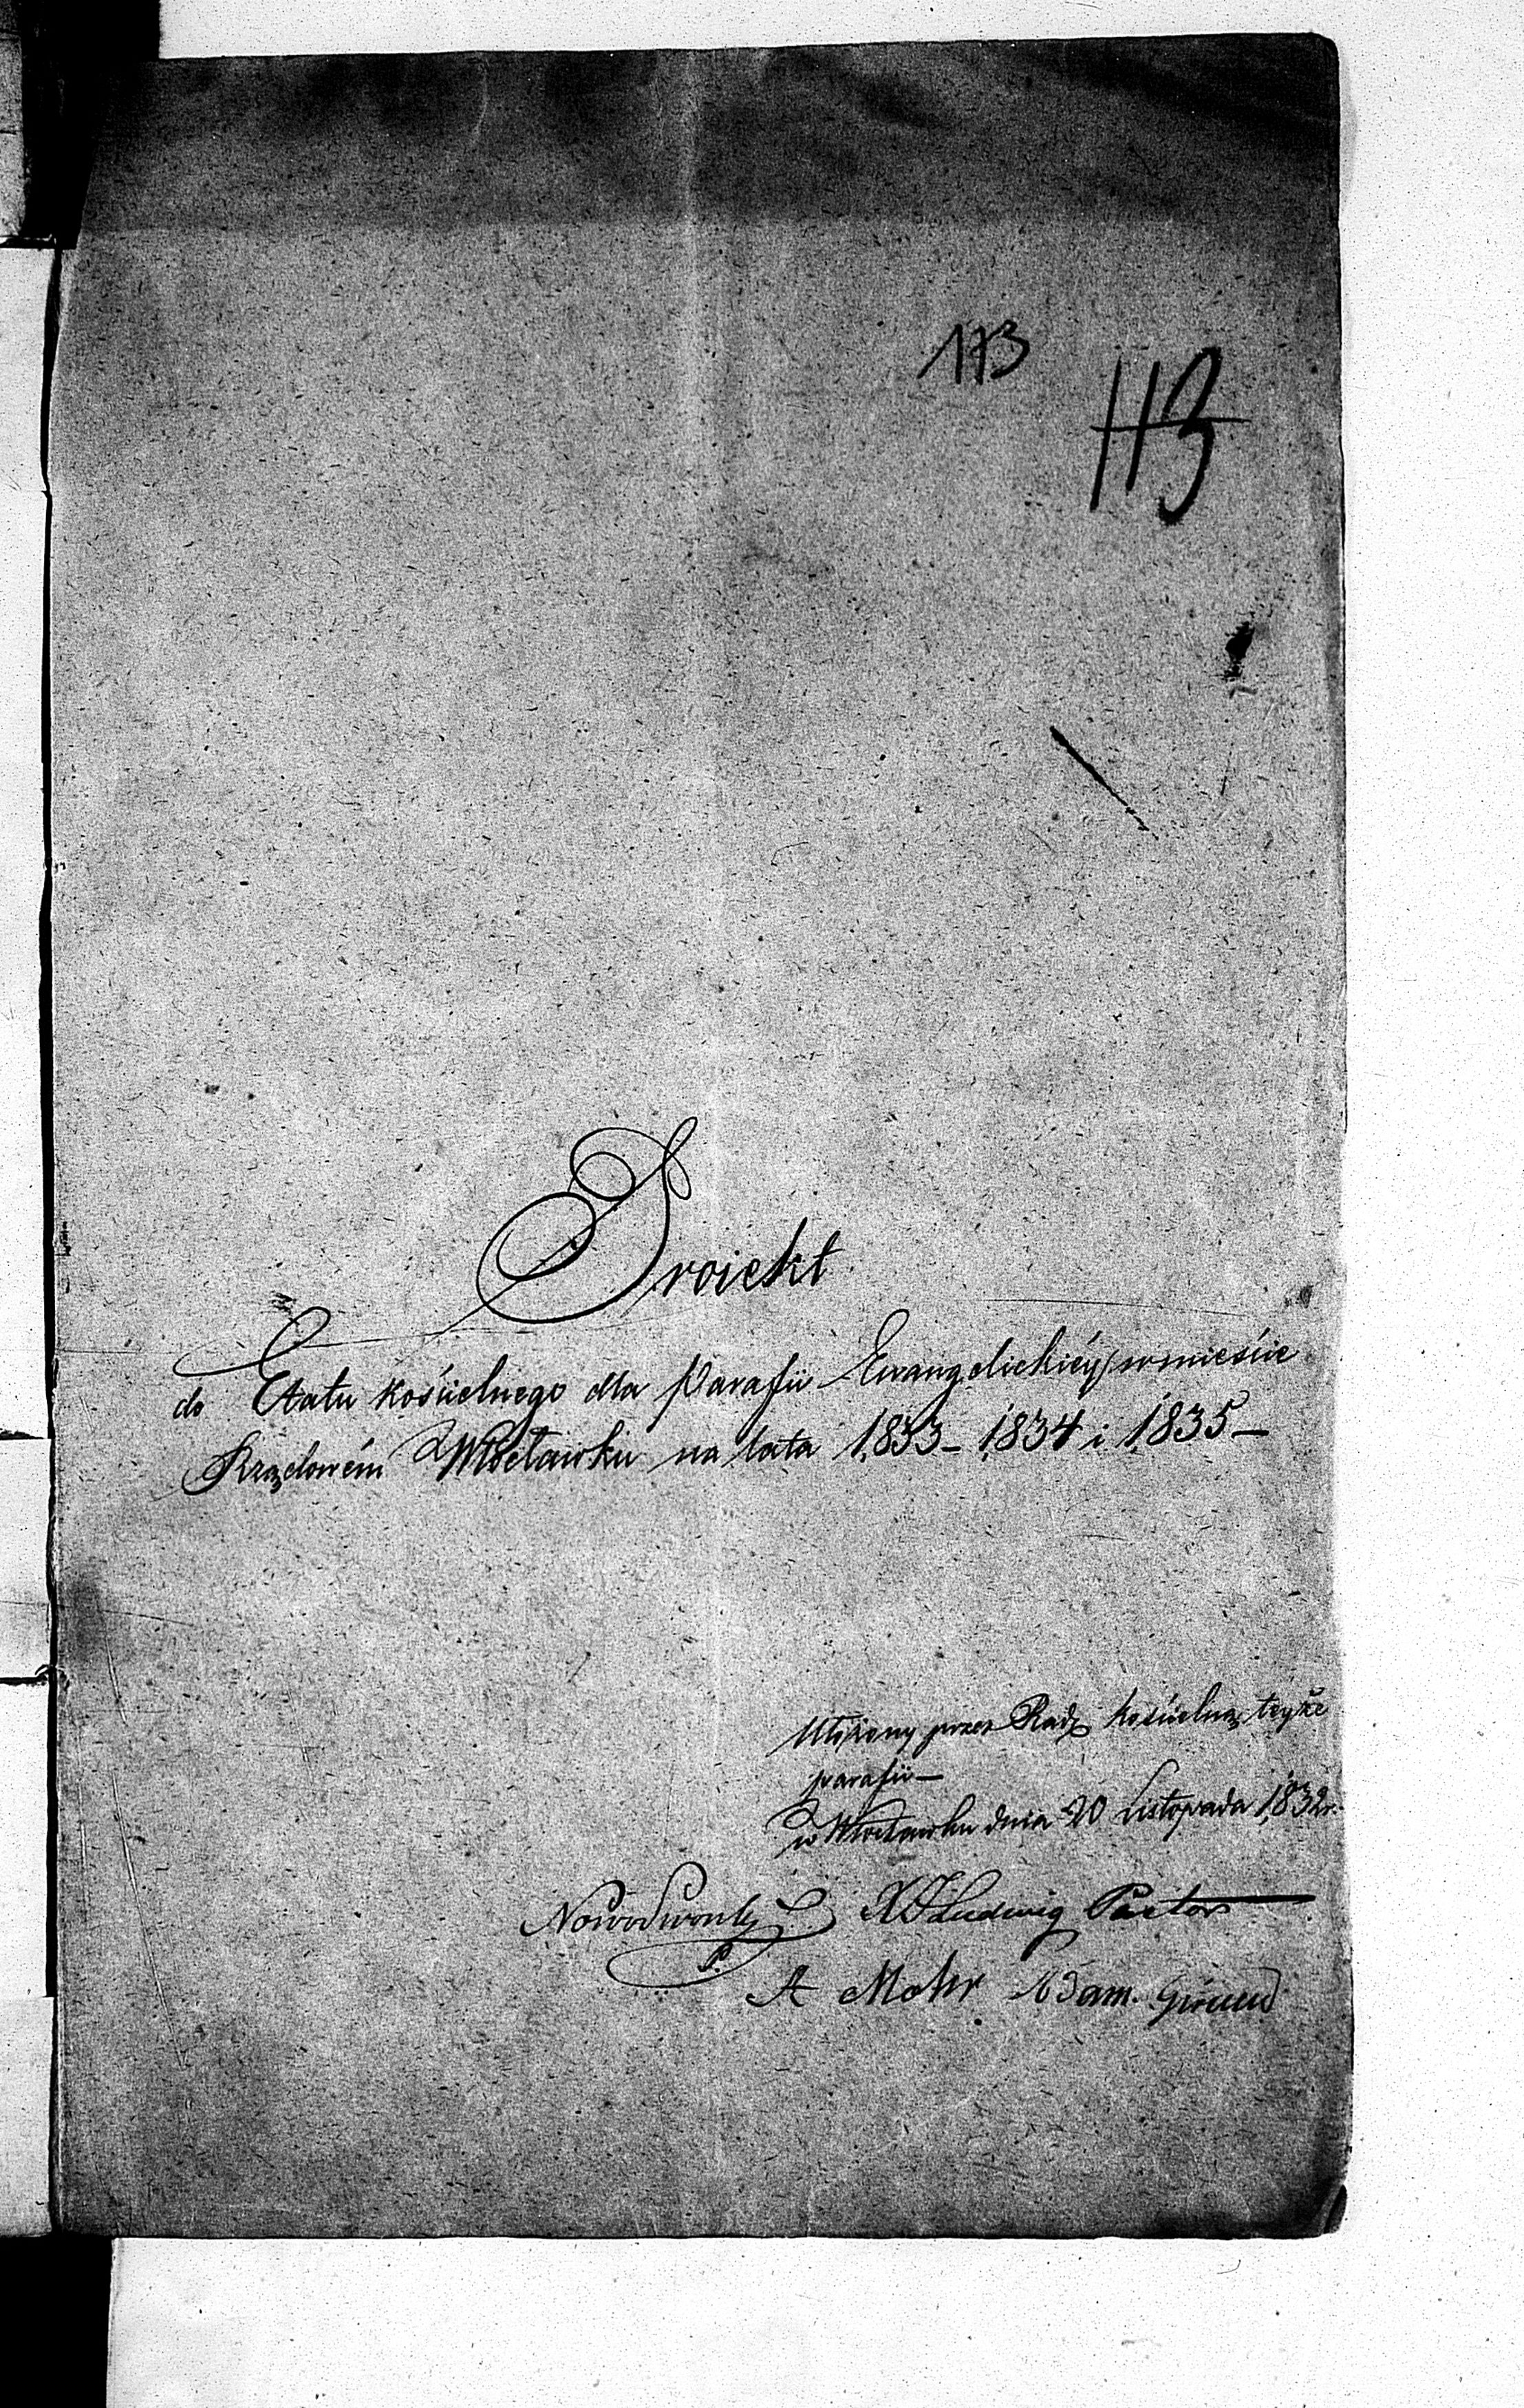 173
113
Proiekt
do Etatu kościelnego dla Parafii Ewangelickiéy w mieście
Rządowém Włocławku na lata 1833 - 1834 i 1835 -
Ułożony przez Radę kościelną teyże
parafii -
w Włocławku dnia 20 Listopada 1832 r.
Ludwig Pastor
A Mohr Adam